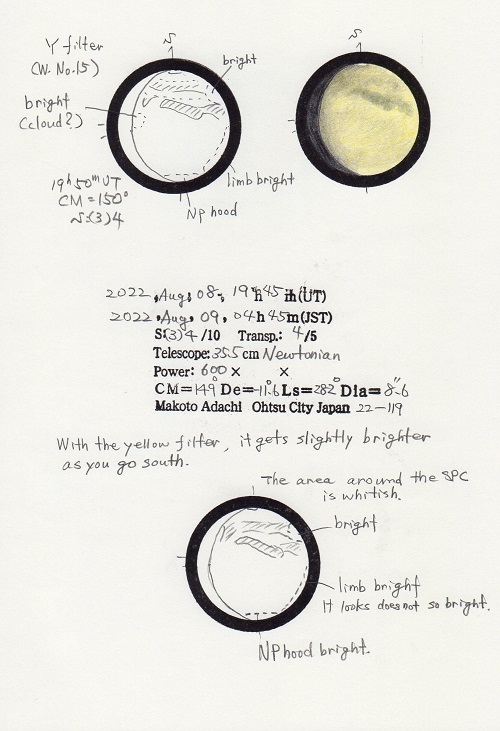 S
S
Y filter
(W. No.15)
bright
bright
(cloud?)
limb bright
NP hood
19h 50m UT
CM = 150°
S:(3)4
2022, Aug, 08, 19h45m(UT)
2022, Aug, 09, 04h45m(JST)
S:(3)4/10 Transp.: 4/5
Telescope: 35.5 cm Newtonian
Power: 600× ×
CM=149° De=-11.6 Ls=282° Dia=8.6"
Makoto Adachi Ohtsu City Japan 22-119
With the yellow filter, it gets slightly brighter
as you go south.
The area around the SPC
is whitish.
bright
limb bright
It looks does not so bright.
NP hood bright.